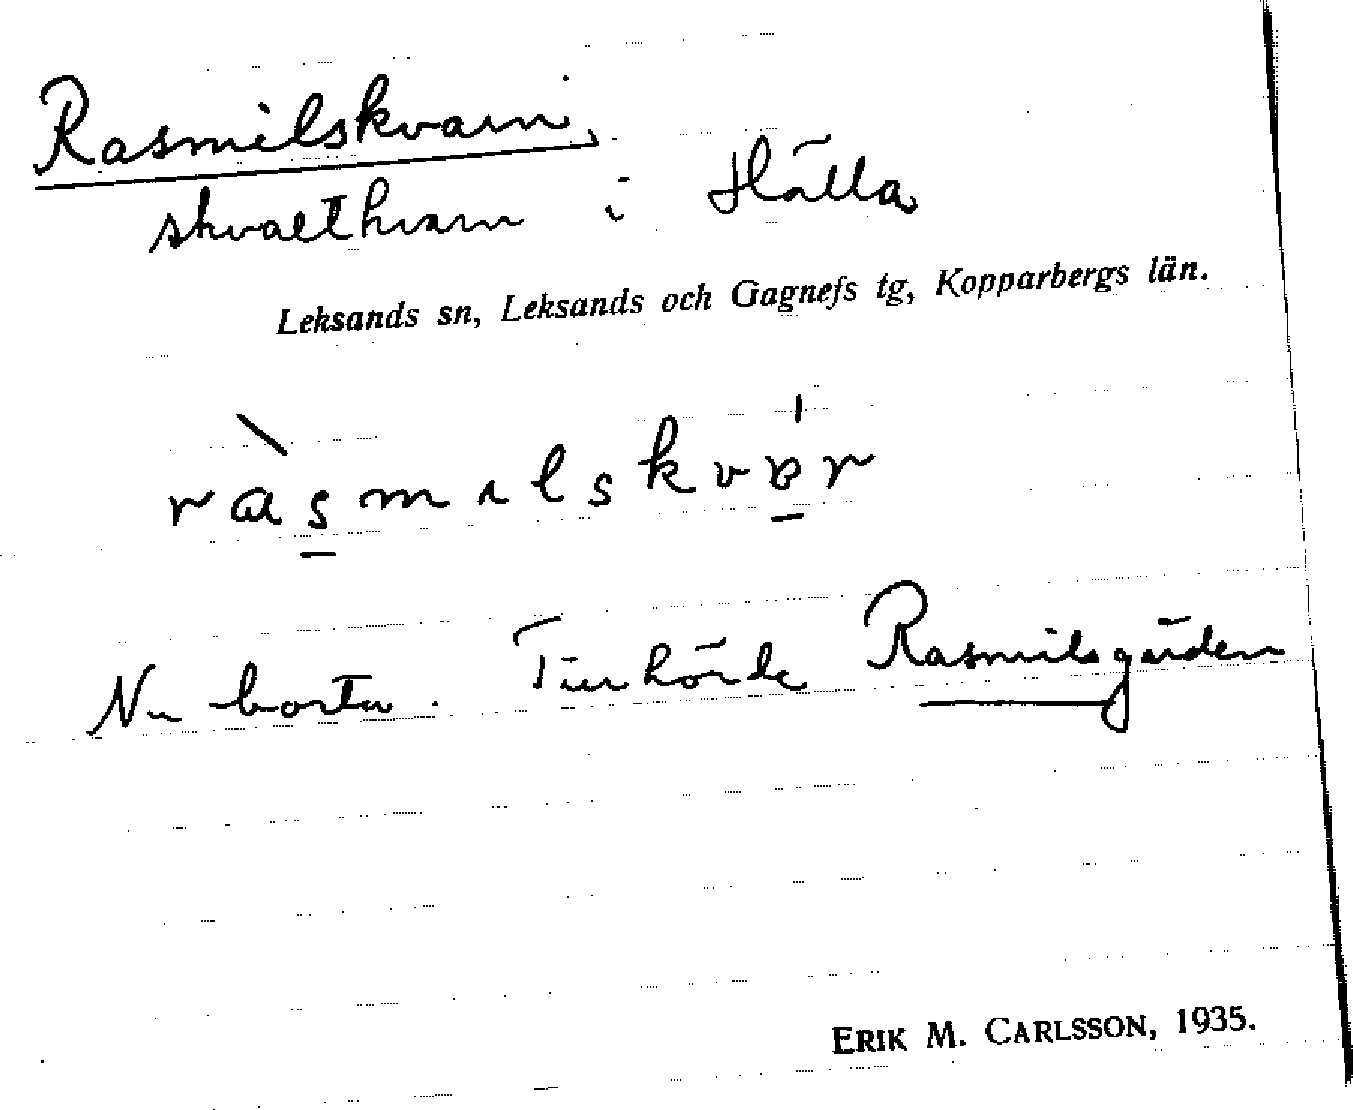 Rasmilskvarn,
skvaltkvarn i Hälla
Leksands sn, Leksands och Gagnefs tg, Kopparbergs län.
Nu borta. Tillhörde Rasmilsgården
ERIK M. CARLSSON, 1935.